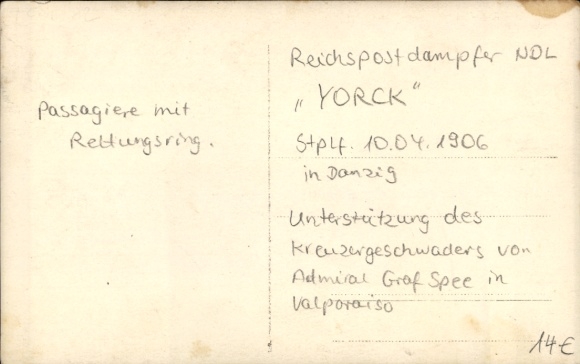 Passagiere mit
Rettungsring.
Reichspostdampfer NDL
„YORCK“
Stplf. 10.04.1906
in Danzig
Unterstützung des
Kreuzergeschwaders von
Admiral Graf Spee in
Valparaiso
14€